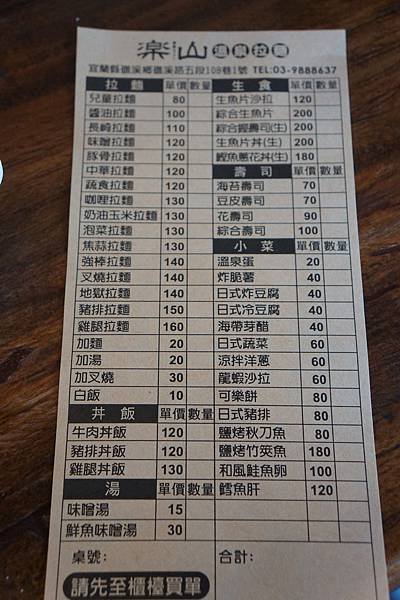 楽山 溫泉拉麵
宜蘭縣礁溪鄉礁溪路五段108巷1號 TEL:03-9888637
拉麵 單價 數量
兒童拉麵 80
醬油拉麵 100
長崎拉麵 110
味噌拉麵 120
豚骨拉麵 120
中華拉麵 120
蔬食拉麵 120
咖哩拉麵 130
奶油玉米拉麵 130
泡菜拉麵 130
焦蒜拉麵 130
強棒拉麵 140
叉燒拉麵 140
地獄拉麵 140
豬排拉麵 150
雞腿拉麵 160
加麵 20
加湯 20
加叉燒 30
白飯 10
丼飯 單價 數量
牛肉丼飯 120
豬排丼飯 120
雞腿丼飯 130
湯 單價 數量
味噌湯 15
鮮魚味噌湯 30
生食 單價 數量
生魚片沙拉 120
綜合生魚片 200
綜合握壽司(生) 200
生魚片丼(生) 200
鰹魚蔥花丼(生) 180
壽司 單價 數量
海苔壽司 70
豆皮壽司 70
花壽司 90
綜合壽司 100
小菜 單價 數量
溫泉蛋 20
炸脆薯 40
日式炸豆腐 40
日式冷豆腐 40
海帶芽醋 40
日式蔬菜 60
涼拌洋蔥 60
龍蝦沙拉 60
可樂餅 80
日式豬排 80
鹽烤秋刀魚 80
鹽烤竹筴魚 180
和風鮭魚卵 100
鱈魚肝 120
桌號: 合計:
請先至櫃檯買單